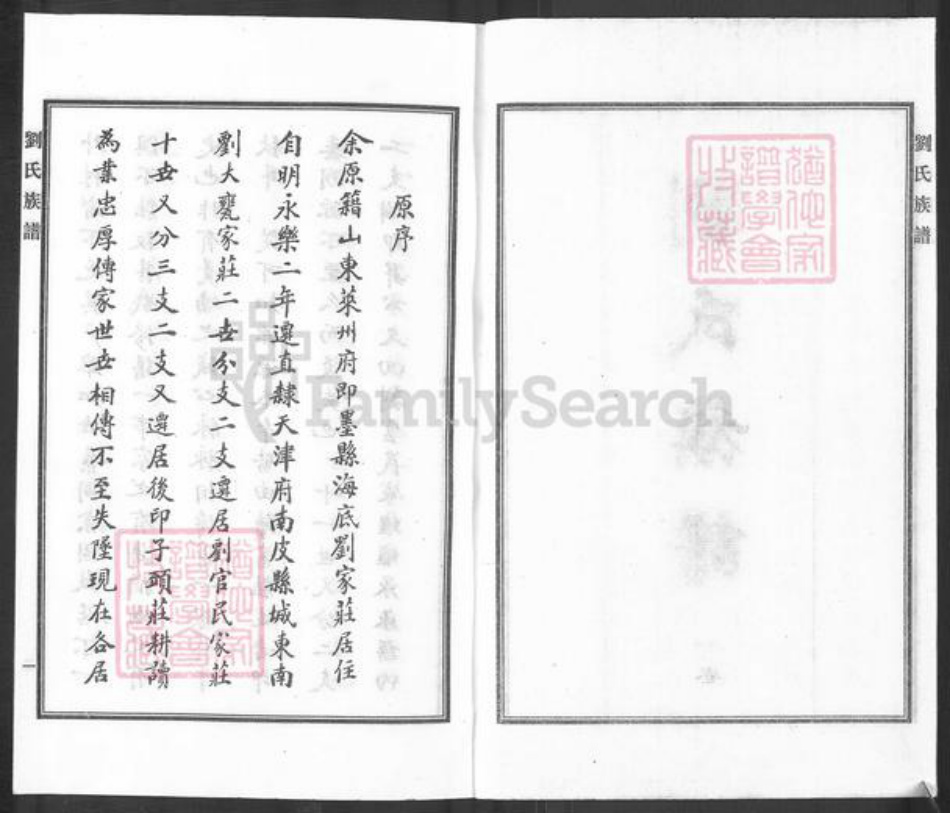 劉氏族譜
猶他家
譜學會
收藏
原序
余原籍山東萊州府即墨縣海底劉家莊居住
自明永樂二年遷直隸天津府南皮縣城東南
劉大甕家莊二世分支二支遷居劉官民家莊
十世又分三支二支又遷居後印子頭莊耕讀
為業忠厚傳家世世相傳不至失墜現在各居
猶他家
譜學會
收藏
劉氏族譜
一
FamilySearch